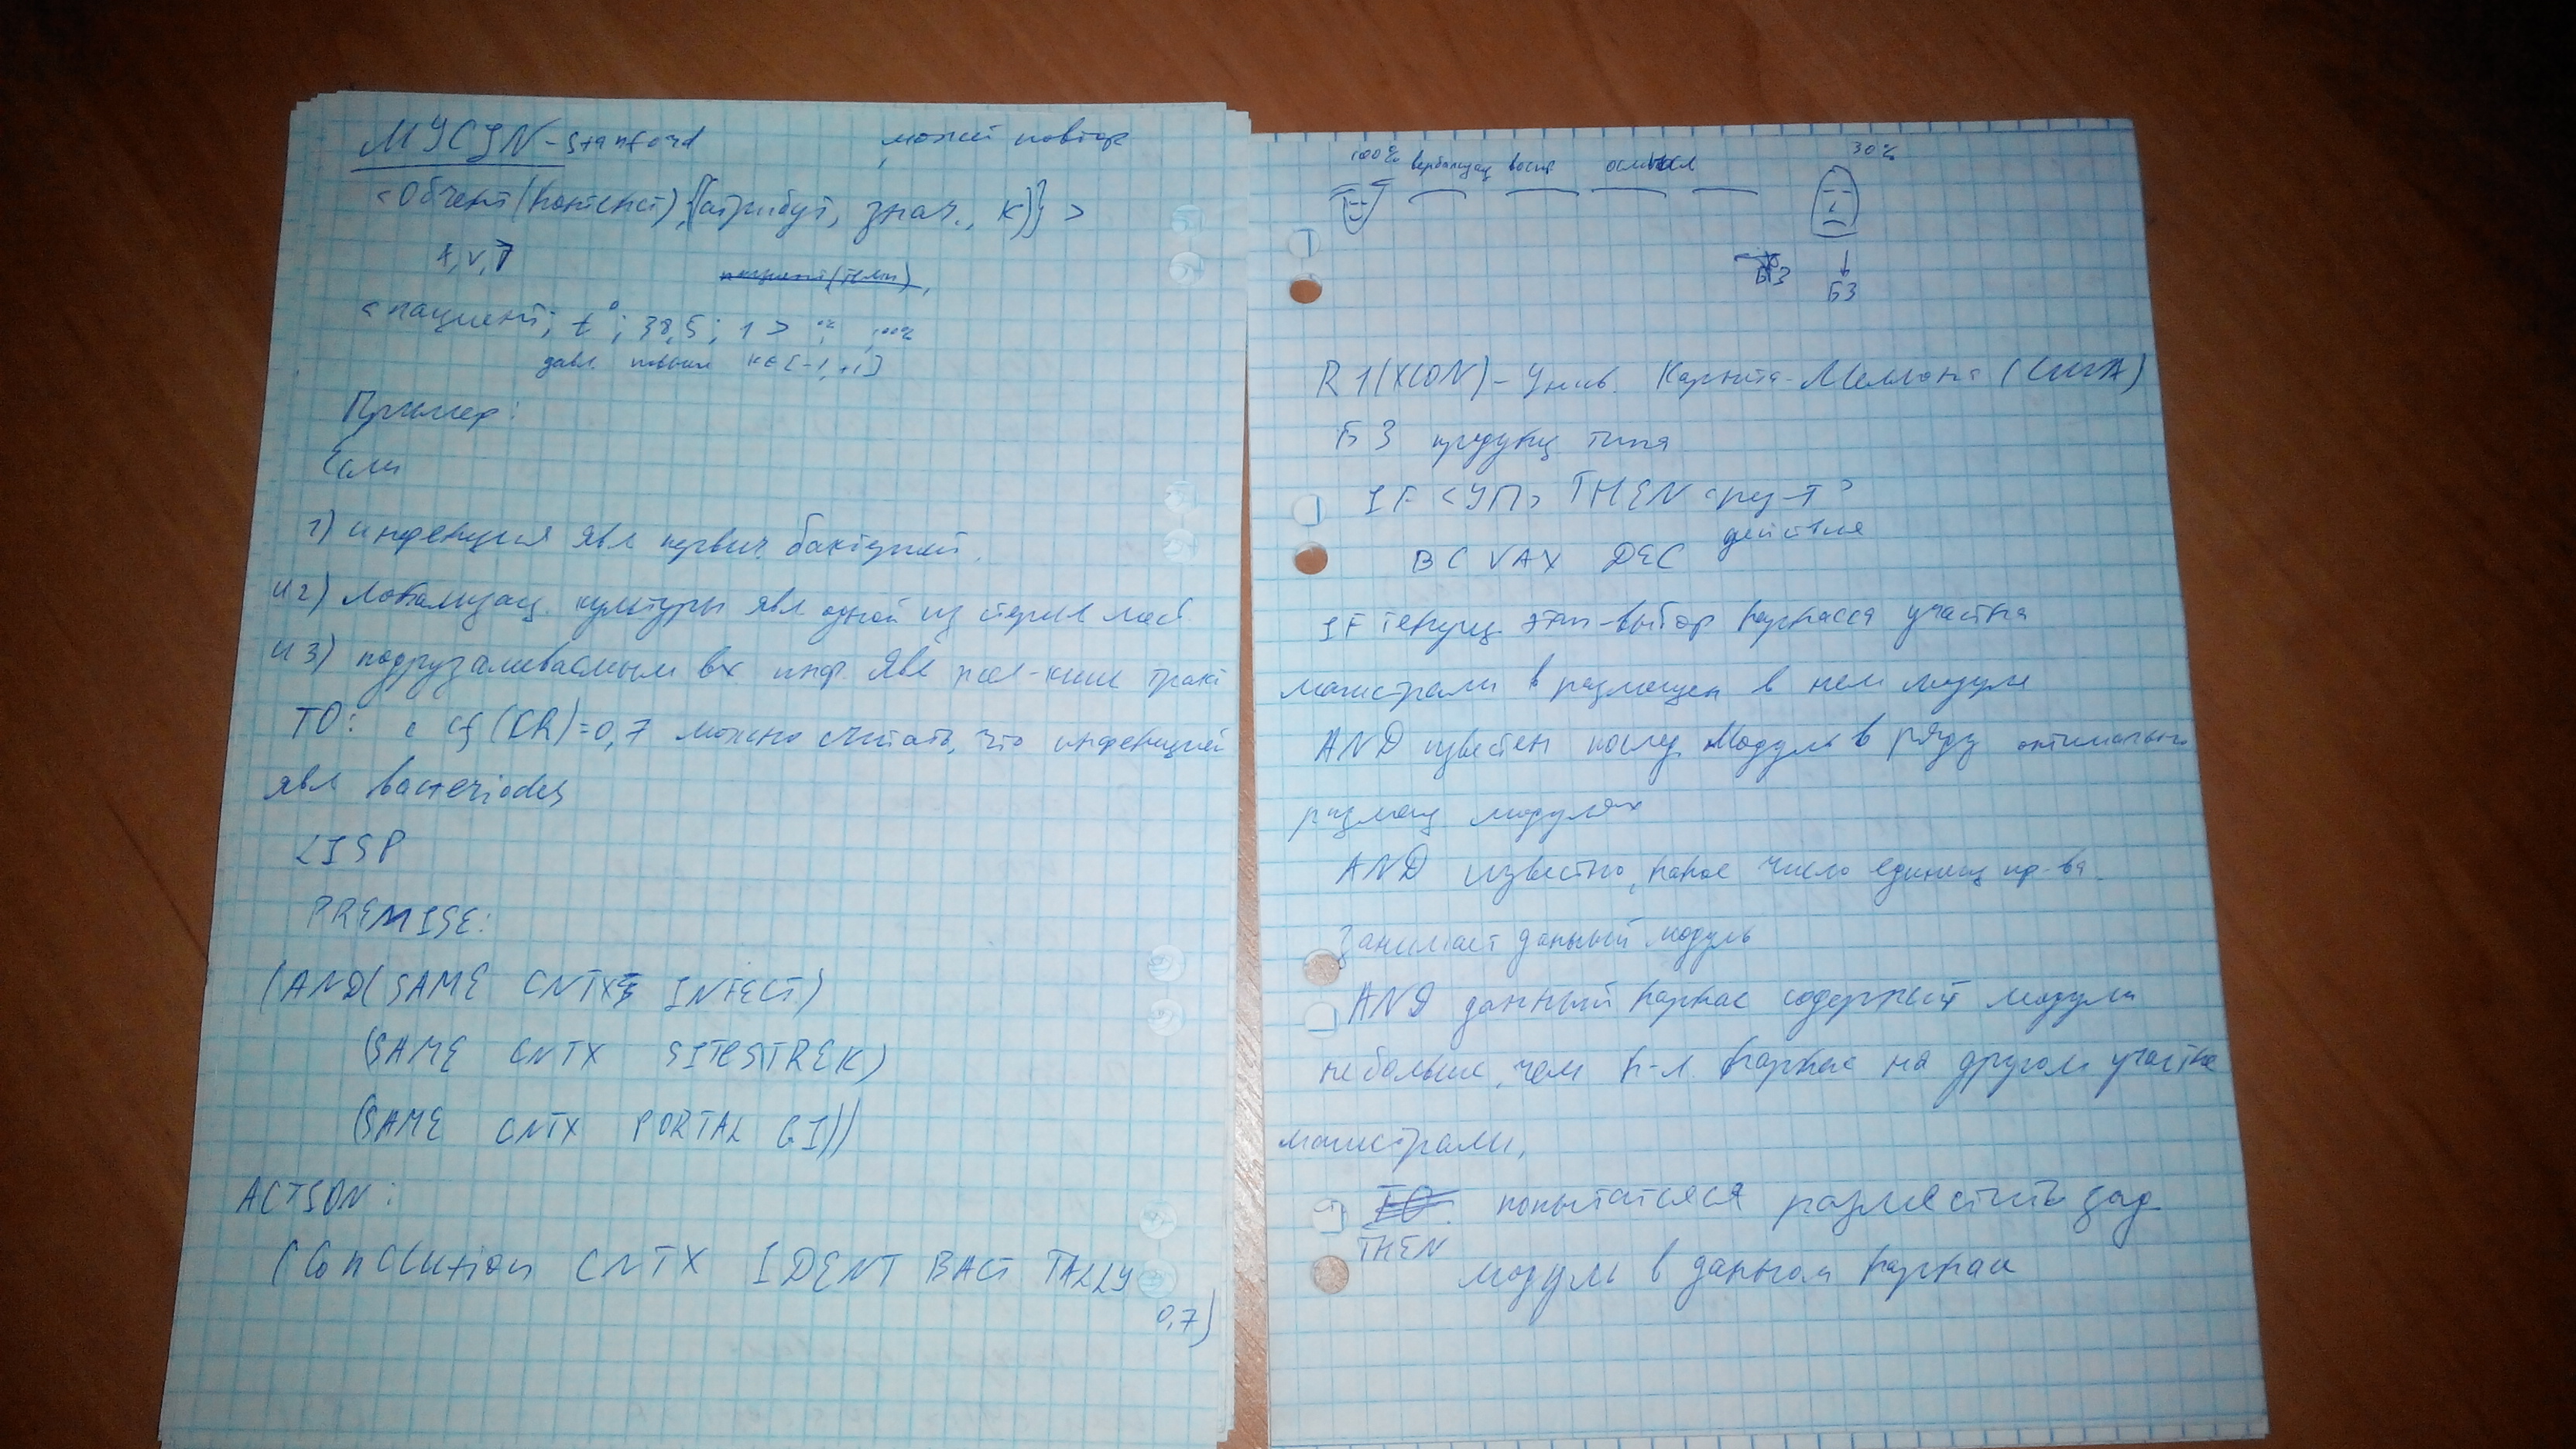 MYCIN - Stanford может повтор
<Объект (контекст), {(атрибут, знач., к)}>
A, V, T
<пациент; t°; 38,5; 1> 100%
давл. повыш к∈[-1, +1]
Пример:
Если
1) инфекция явл первич. бактерией.
и 2) локализац. культуры явл одной из стерил
и 3) подразумеваемым вх. инф. явл тракт
ТО: с cf (CR)=0,7 можно считать, что инфекцией
явл bacteriodes
LISP
PREMISE:
(AND(SAME CNTX INFECT)
(SAME CNTX SITESTREK)
(SAME CNTX PORTAL GI))
ACTION:
(Conclution CNTX IDENT BACT TALLY
0,7)
100% вербализац восп 30%
БЗ БЗ
R1(XCON) - Унив. Карнеги-Меллона (США)
БЗ продукц типа
IF <УП> THEN <рез-т>
действия
ВС VAX DEC
IF текущ. этап - выбор каркаса участка
магистрали в размещен в нем модуля
AND известен послед. модуль в ряду оптимально
размещ модулях
AND известно, какое число единиц пр-ва
занимает данный модуль
AND данный каркас содержит модули
не больше, чем к-л. каркас на другом участке
магистрали,
THEN попытаться разместить зад
модуль в данном каркасе